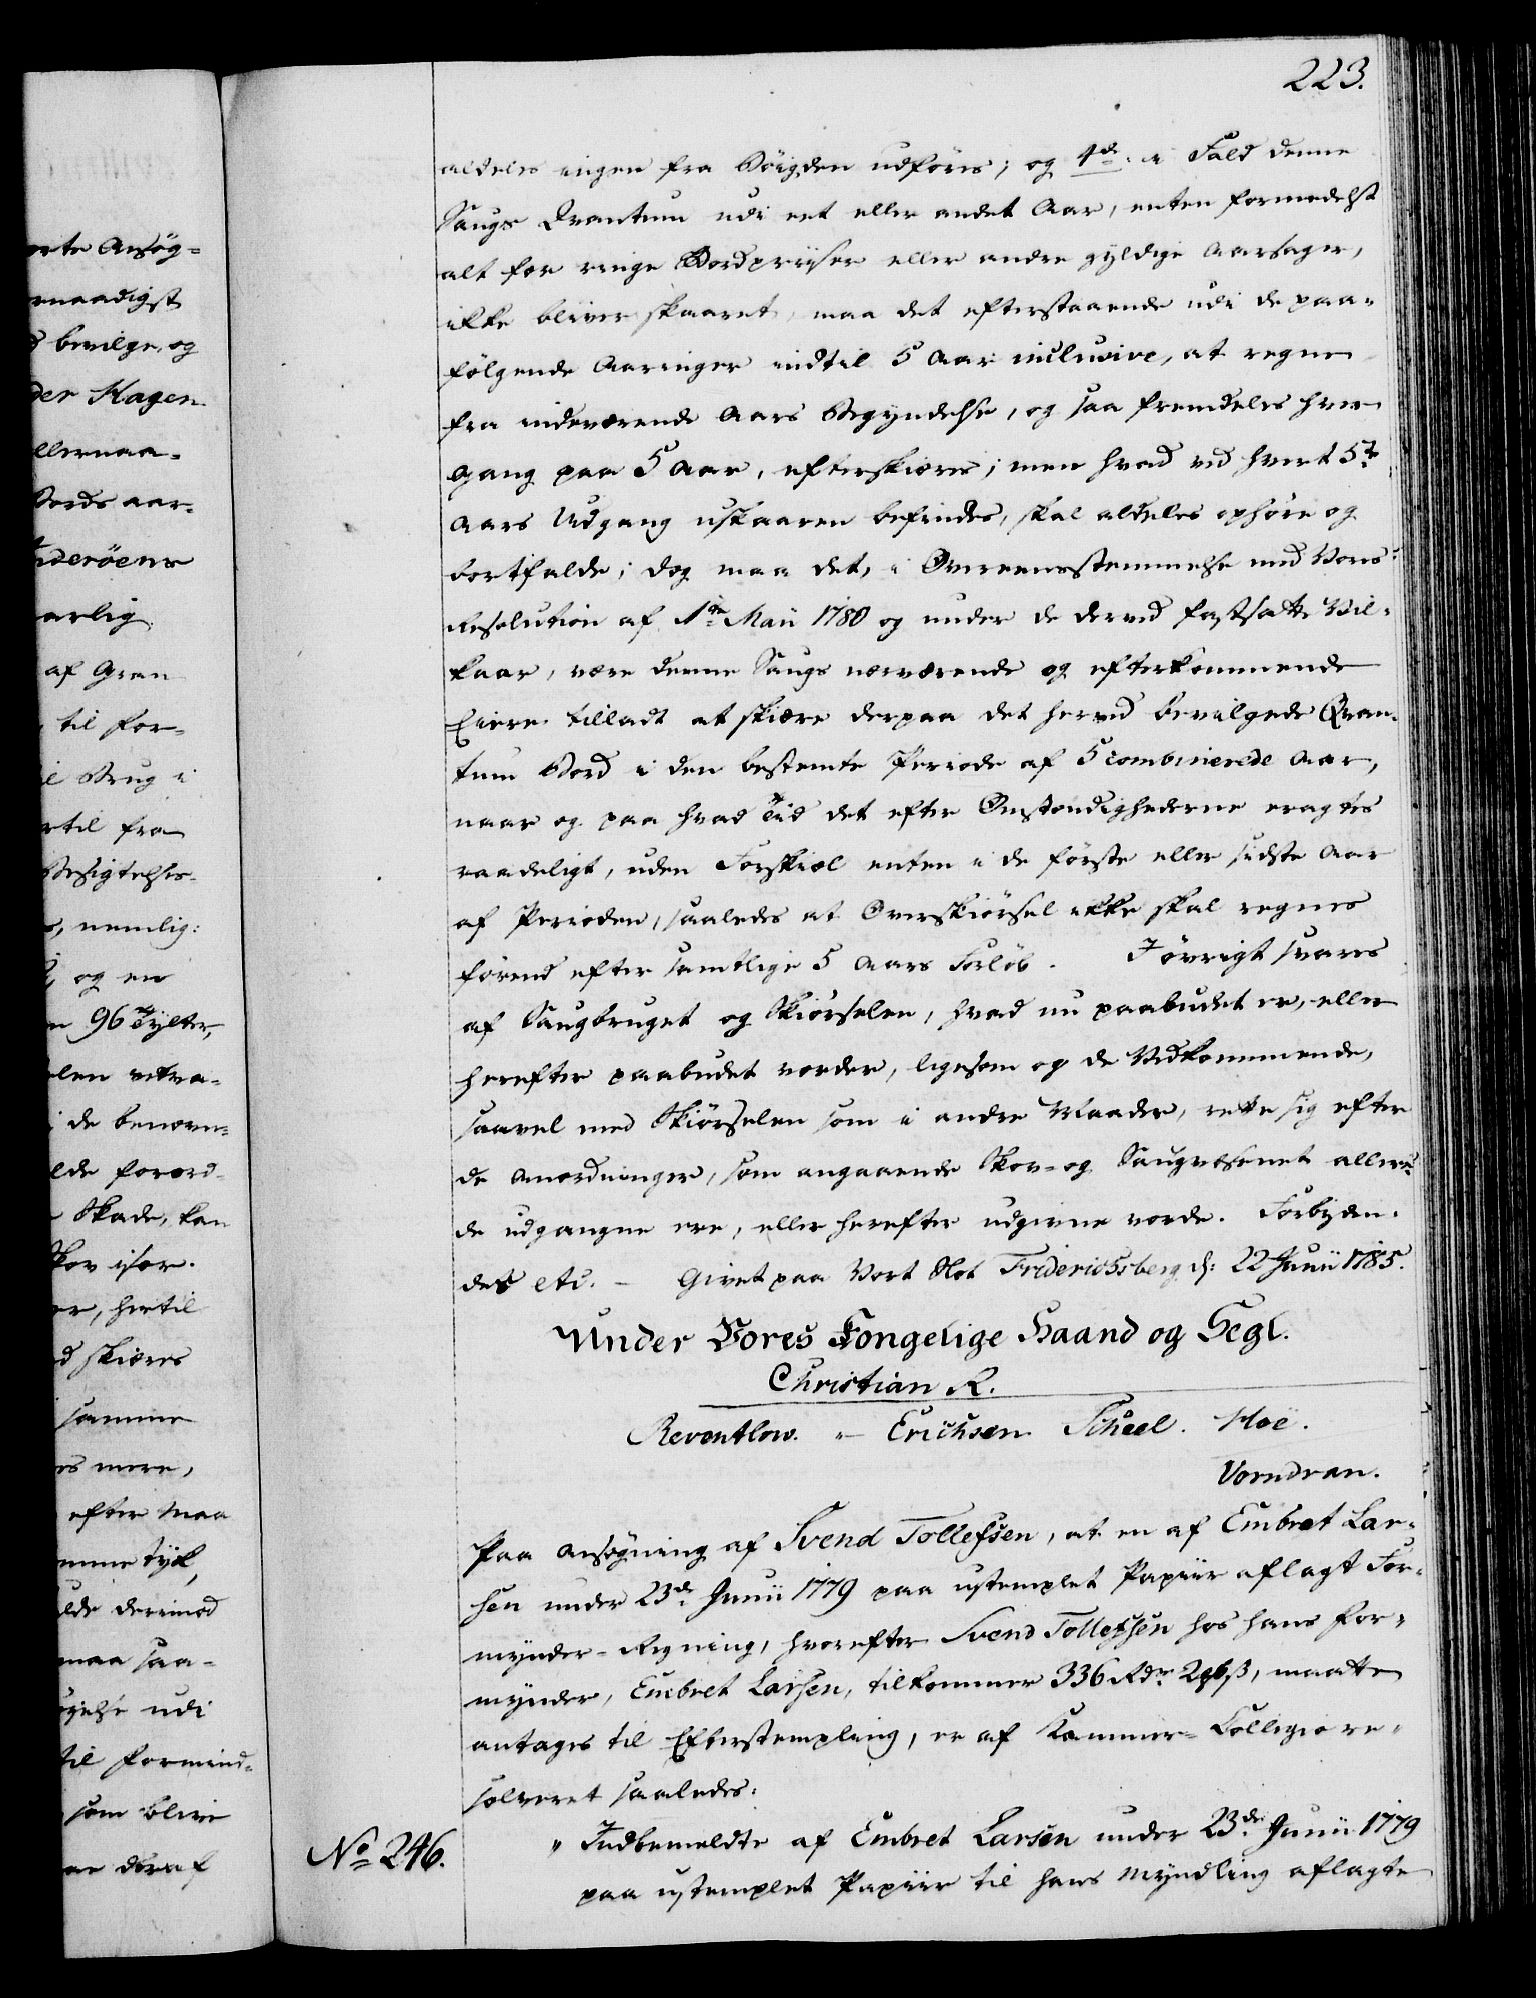 223.
aldeles ingen fra Bøigden udføres; og 4de i Fald denne
Saugs Qvantum udi eet eller andet Aar, enten formedelst
alt for ringe Bordpriiser eller andre gyldige Aarsager,
ikke bliver skaaret, maa det efterstaaende udi de paa-
følgende Aaringer indtil 5 Aar inclusive, at regne
fra indeværende Aars Begyndelse, og saa fremdeles hver
gang paa 5 Aar, efterskiæres; men hvad ved hvert 5te
Aars Udgang uskaaren befindes, skal aldeles ophøre og
bortfalde; dog maa det, i Overeensstemmelse med Vores
Resolution af 1te Maii 1780 og under de derved fastsatte Vil-
kaar, være denne Saugs nærværende og efterkommende
Eiere tilladt at skiære derpaa det herved bevilgede Qvan-
tum Bord i den bestemte Periode af 5 combinerede Aar,
naar og paa hvad Tid det efter Omstændighederne eragtes
raadeligt, uden Forskiæl enten i de første eller sidste Aar
af Perioden, saaledes at Overskiørsel ikke skal regnes
førend efter samtlige 5 Aars Forløb. I øvrigt svares
af Saugbruget og Skiørselen, hvad nu paabudet er, eller
herefter paabudet vorder, ligesom og de Vedkommende,
saavel med Skiørselen som i andre Maader, rette sig efter
de Anordninger, som angaaende Skov- og Saugvæsenet allere-
de udgangne ere, eller herefter udgivne vorde. Forbyden-
des etc. - Givet paa Vort Slot Friderichsberg d: 22 Junii 1785.
Under Vores Kongelige Haand og Segl.
Christian R.
Reventlow. - Erichsen. Scheel. Hoë.
Vorndran.
Paa Ansøgning af Svend Tollefsen, at en af Embret Lar-
sen under 23de Junii 1779 paa ustemplet Papiir aflagt For-
mynder-Regning, hvorefter Svend Tollefsen hos hans For-
mynder, Embret Larsen, tilkommer 336 Rdr 2 ß, maatte
antages til Efterstempling, er af Kammer-Collegio re-
solveret saaledes:
No 246.
" Indbemeldte af Embret Larsen under 23de Junii 1779
paa ustemplet Papiir til hans Myndling aflagte
orte Ansøg-
rnaadigst
d bevilge, og
der Kagen
llernaa-
Bords aar-
nderöens
arlig
af Gran
til for-
l Brug i
rtil fra
Besigtelses-
s, nemlig:
og en
n 96 Tylter,
i de benævn-
lde forord-
Skade, kan
kov især.
er, hertil
d skiæres
samme
es mere,
efter maa
mme tyk,
lde derimod
maa saa-
øyelse udi
til formind-
som blive
ne deraf